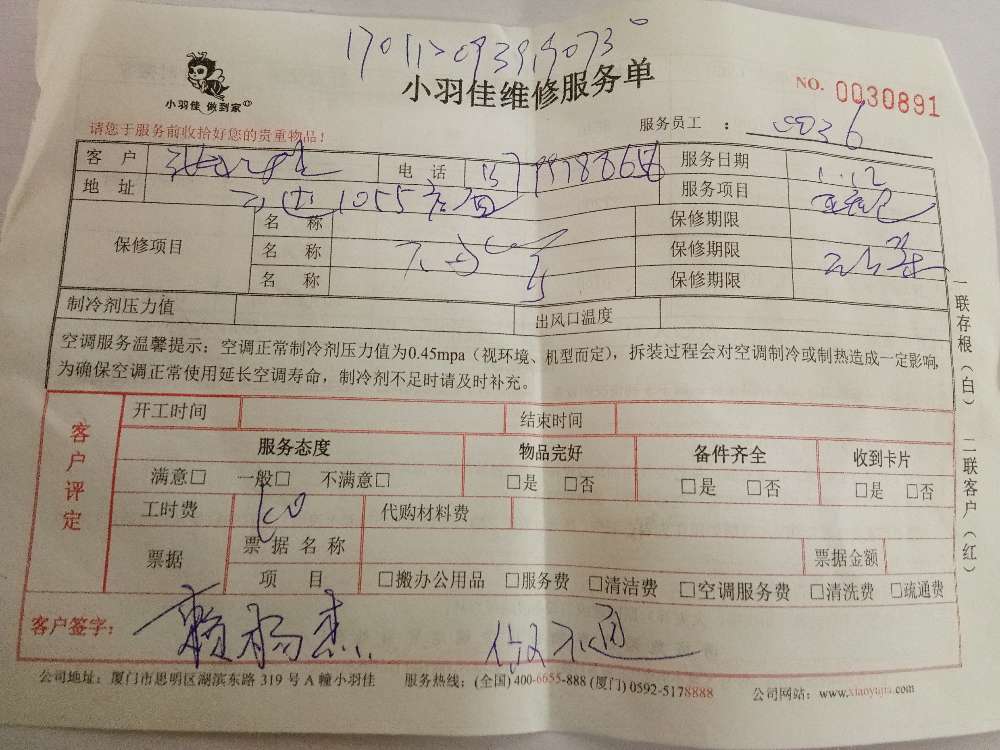 小羽佳维修服务单
NO. 0030891
小羽佳 做到家
请您于服务前收拾好您的贵重物品！
服务员工 ： 0036
客 户 电 话 服务日期 1.12
地 址 服务项目
保修项目
名 称 保修期限
名 称 保修期限
名 称 保修期限
制冷剂压力值 出风口温度
空调服务温馨提示：空调正常制冷剂压力值为0.45mpa（视环境、机型而定），拆装过程会对空调制冷或制热造成一定影响，
为确保空调正常使用延长空调寿命，制冷剂不足时请及时补充。
客户评定
开工时间 结束时间
服务态度 物品完好 备件齐全 收到卡片
满意□ 一般□ 不满意□ □是 □否 □是 □否 □是 □否
工时费 代购材料费
票据 票据名称 票据金额
项 目 □搬办公用品 □服务费 □清洁费 □空调服务费 □清洗费 □疏通费
客户签字： 赖杨杰
公司地址：厦门市思明区湖滨东路 319 号 A 幢小羽佳 服务热线：(全国) 400-6655-888 (厦门) 0592-5178888 公司网站：www.xiaoyujia.com
一联存根（白） 二联客户（红）